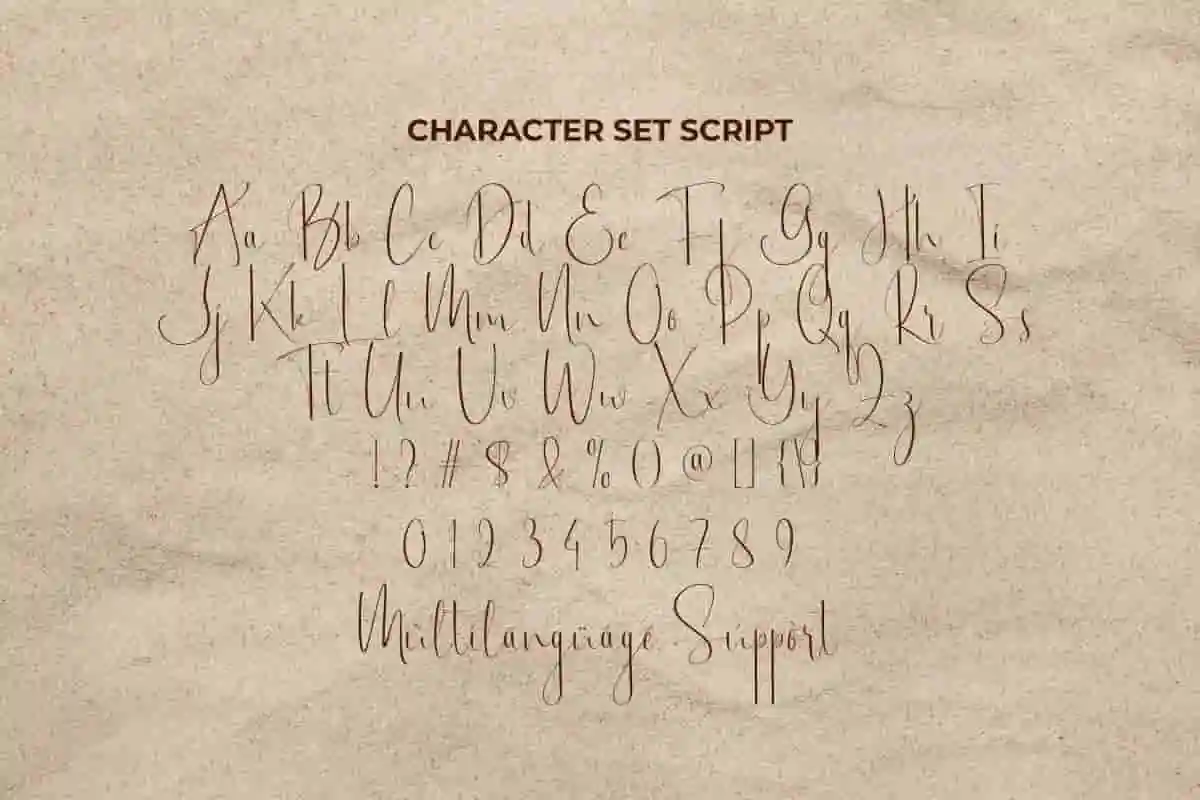 CHARACTER SET SCRIPT
Aa Bb Cc Dd Ee Ff Gg Hh Ii
Jj Kk Ll Mm Nn Oo Pp Qq Rr Ss
Tt Uu Vv Ww Xx Yy Zz
!?#$&%()@[]{\}
0123456789
Mültilángüágé Súppórt